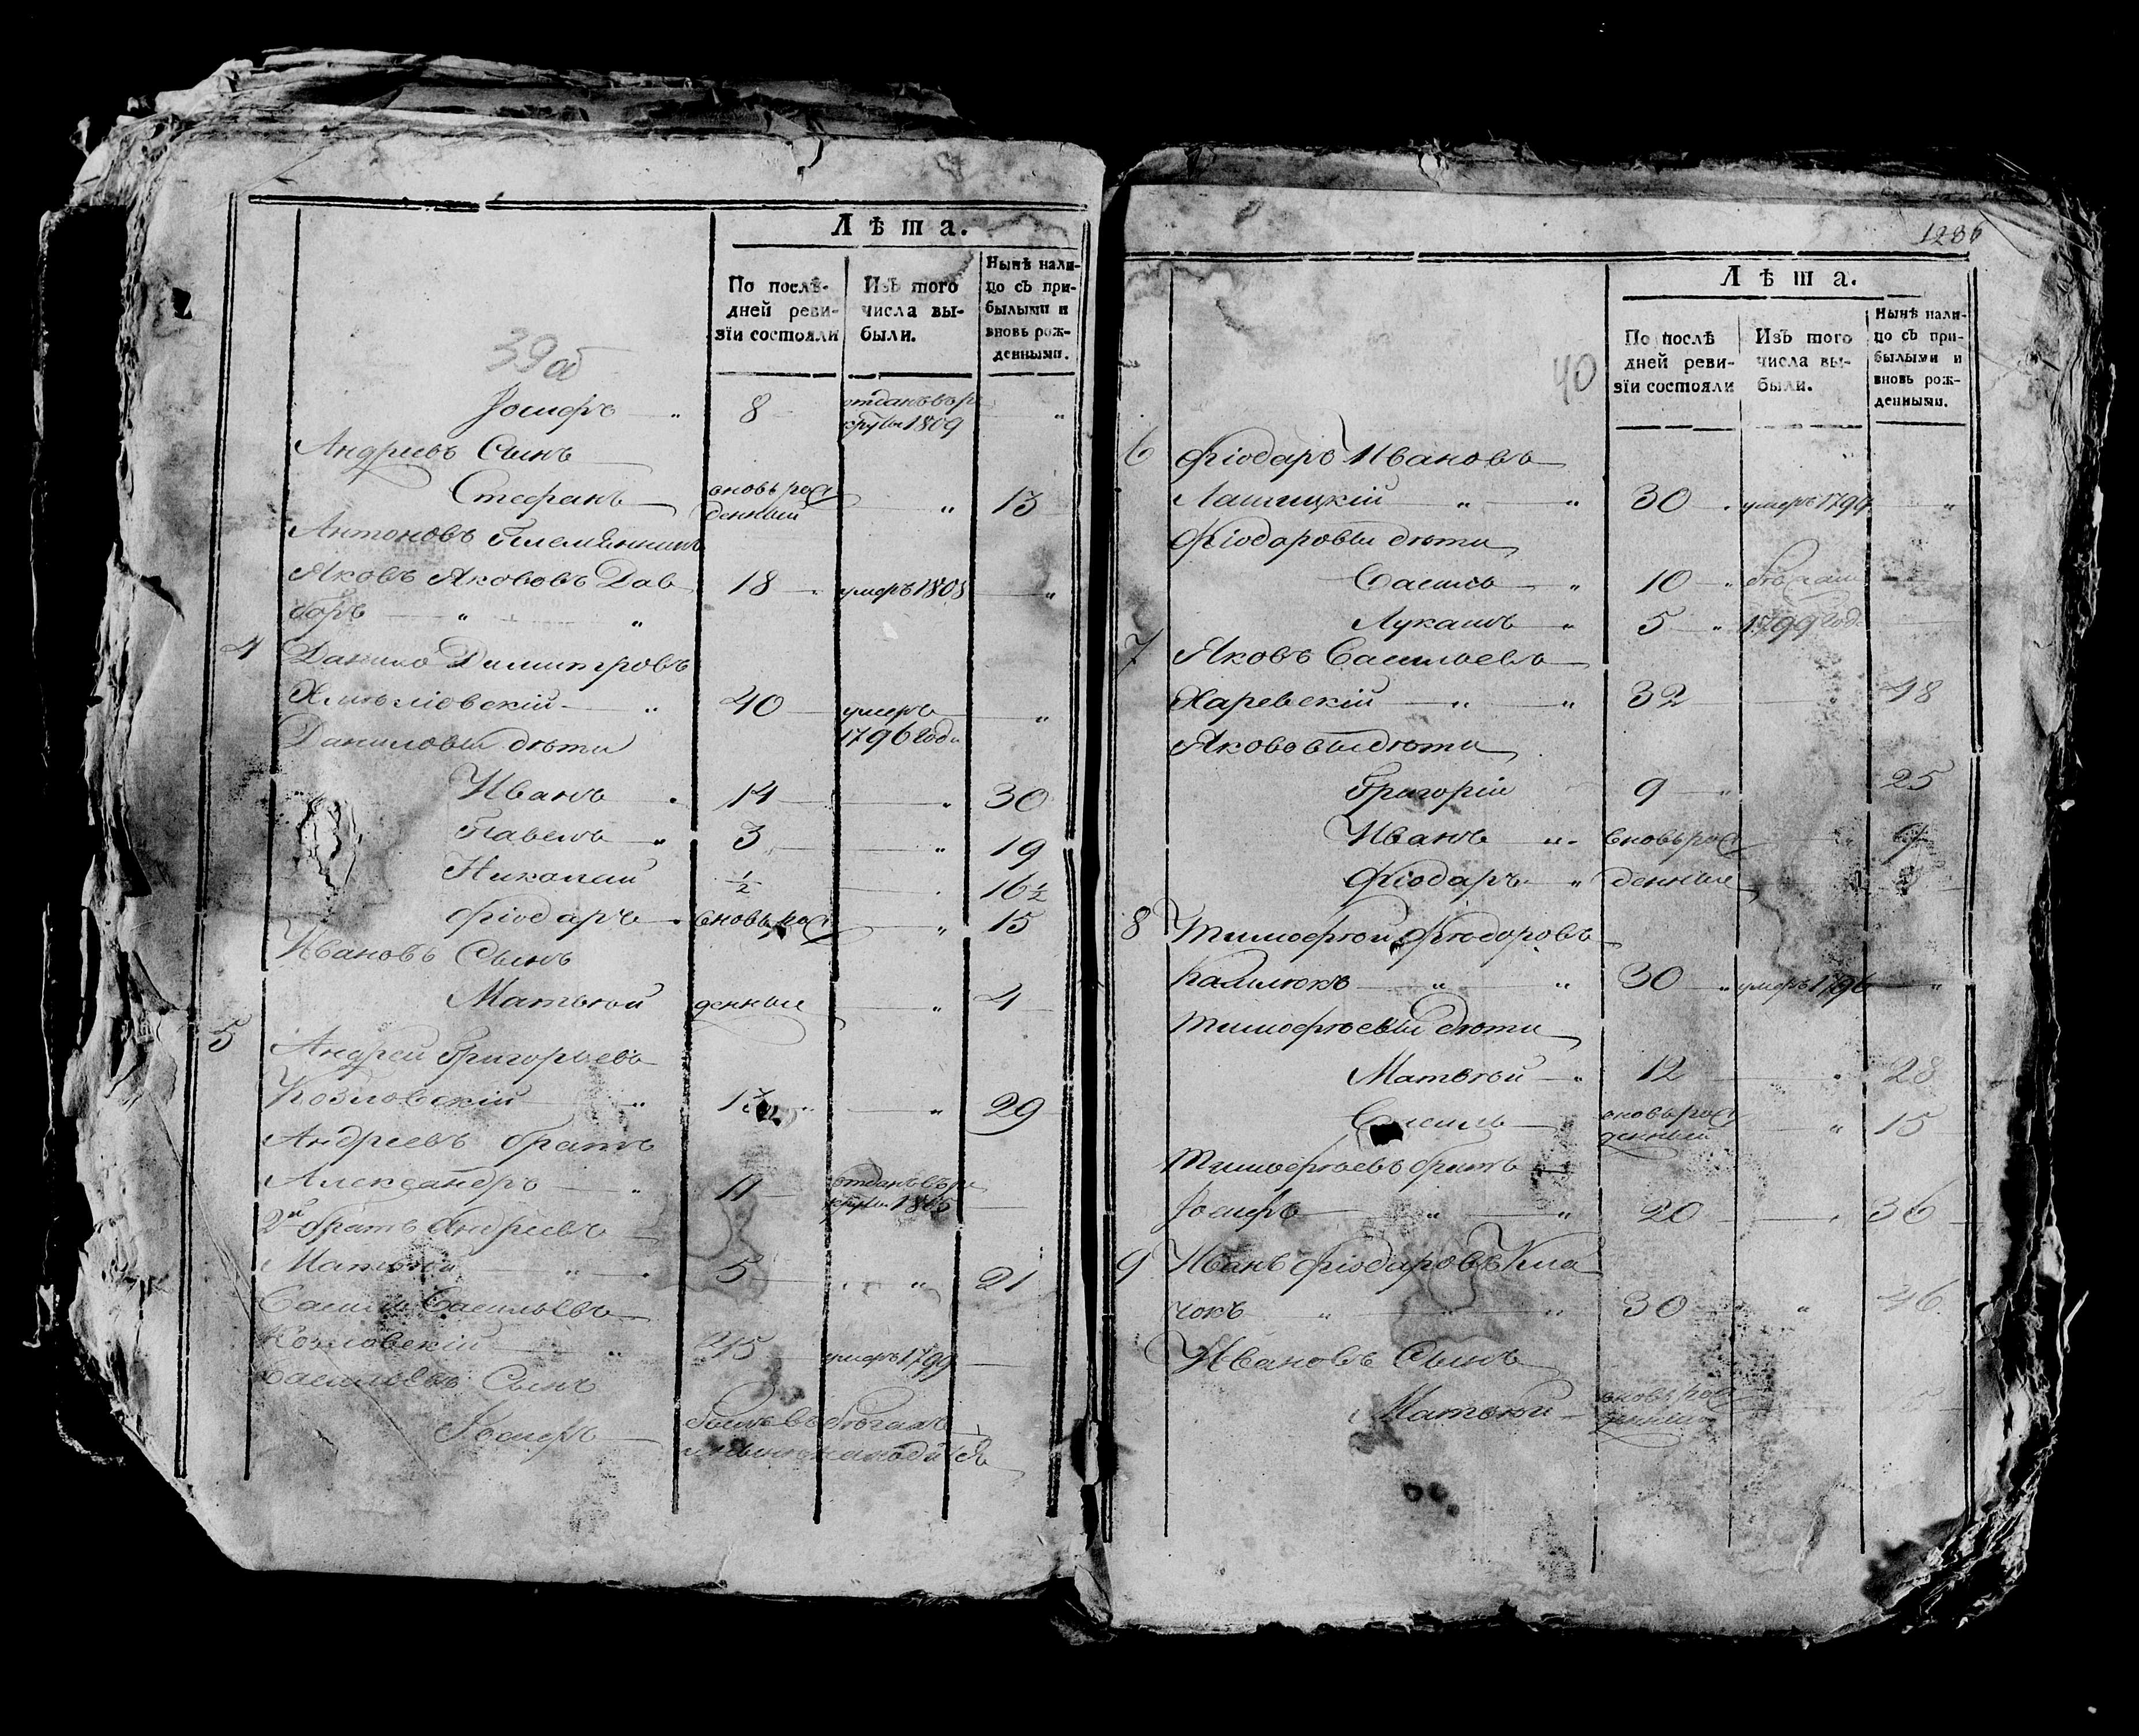 Лѣта.
По послѣ-
дней реви-
зїи состояли
Изъ того
числа вы-
были.
Нынѣ нали-
цо съ при-
былыми и
вновь рож-
денными.
39об
Іосифъ „ 8 отданъ въ ре
круты 1809 „
Андреевъ Сынъ
Стефанъ вновь рож
денный „ 13
Антоновъ Племянникъ
Яковъ Яковлевъ Дав 18 умеръ 1808 „
боръ „ „
4 Данило Димитровъ
40 умеръ „
1796 года
Даниловы дѣти
Иванъ 14 „ 30
Павелъ „ 3 „ 19
Николай ½ 16½
Фіодаръ вновь рож „ 15
Ивановъ Сынъ
Матвѣй денные „ 4
5 Андрей Григорьевъ
Козловскій „ „ 29
Андреевъ братъ
Александръ „ 11 отданъ въ ре
круты
2й братъ Андреевъ
Матвѣй „ 5 „ 21
Василій Васильевъ
Козловскій „ 45 умеръ 1799
Васильевъ Сынъ
Іосифъ былъ въ бѣгахъ
1286
Лѣта.
По послѣ
дней реви-
зїи состояли
Изъ того
числа вы-
были.
Нынѣ нали-
цо съ при-
былыми и
вновь рож-
денными.
40
6 Фіодаръ Ивановъ
Лашицкій „ „ 30 умеръ 1794 „
Фіодаровы дѣти
Василь „ 10 „ бѣжали
Лукашъ „ 5 „ 1799 года
7 Яковъ Васильевъ
Харевскій „ „ 32 48
Якововы дѣти
Григорій 9 „ 25
Иванъ „ вновь рож 9
Фіодаръ „ денные
8 Тимофѣй Фіодоровъ
„ „ 30 „ умеръ 1796 „
Тимофѣевы дѣти
Матвѣй „ 12 „ 28
Василь вновь рож
денный „ 15
Тимофѣевъ братъ
Іосифъ „ „ 20 „ 36
9 Иванъ Фіодаровъ Кла
чокъ „ „ „ 30 „ 46
Ивановъ Сынъ
Матвѣй вновь рож
денный